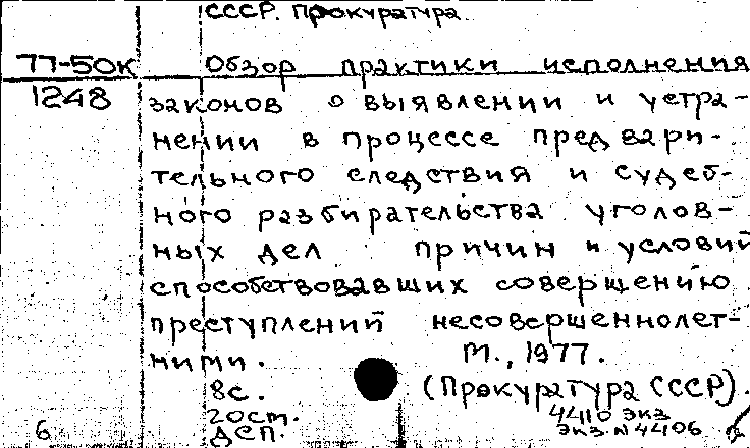 СССР. Прокуратура.
77-50к Обзор практики исполнения
1248 законов о выявлении и устра-
нении в процессе предвари-
тельного следствия и судеб-
ного разбирательства уголов-
ных дел причин и условий
способствовавших совершению
преступлений несовершеннолет-
ними. М., 1977.
8с. (Прокуратура СССР).
20см. 4410 экз
6 ДСП. Экз. N 4406